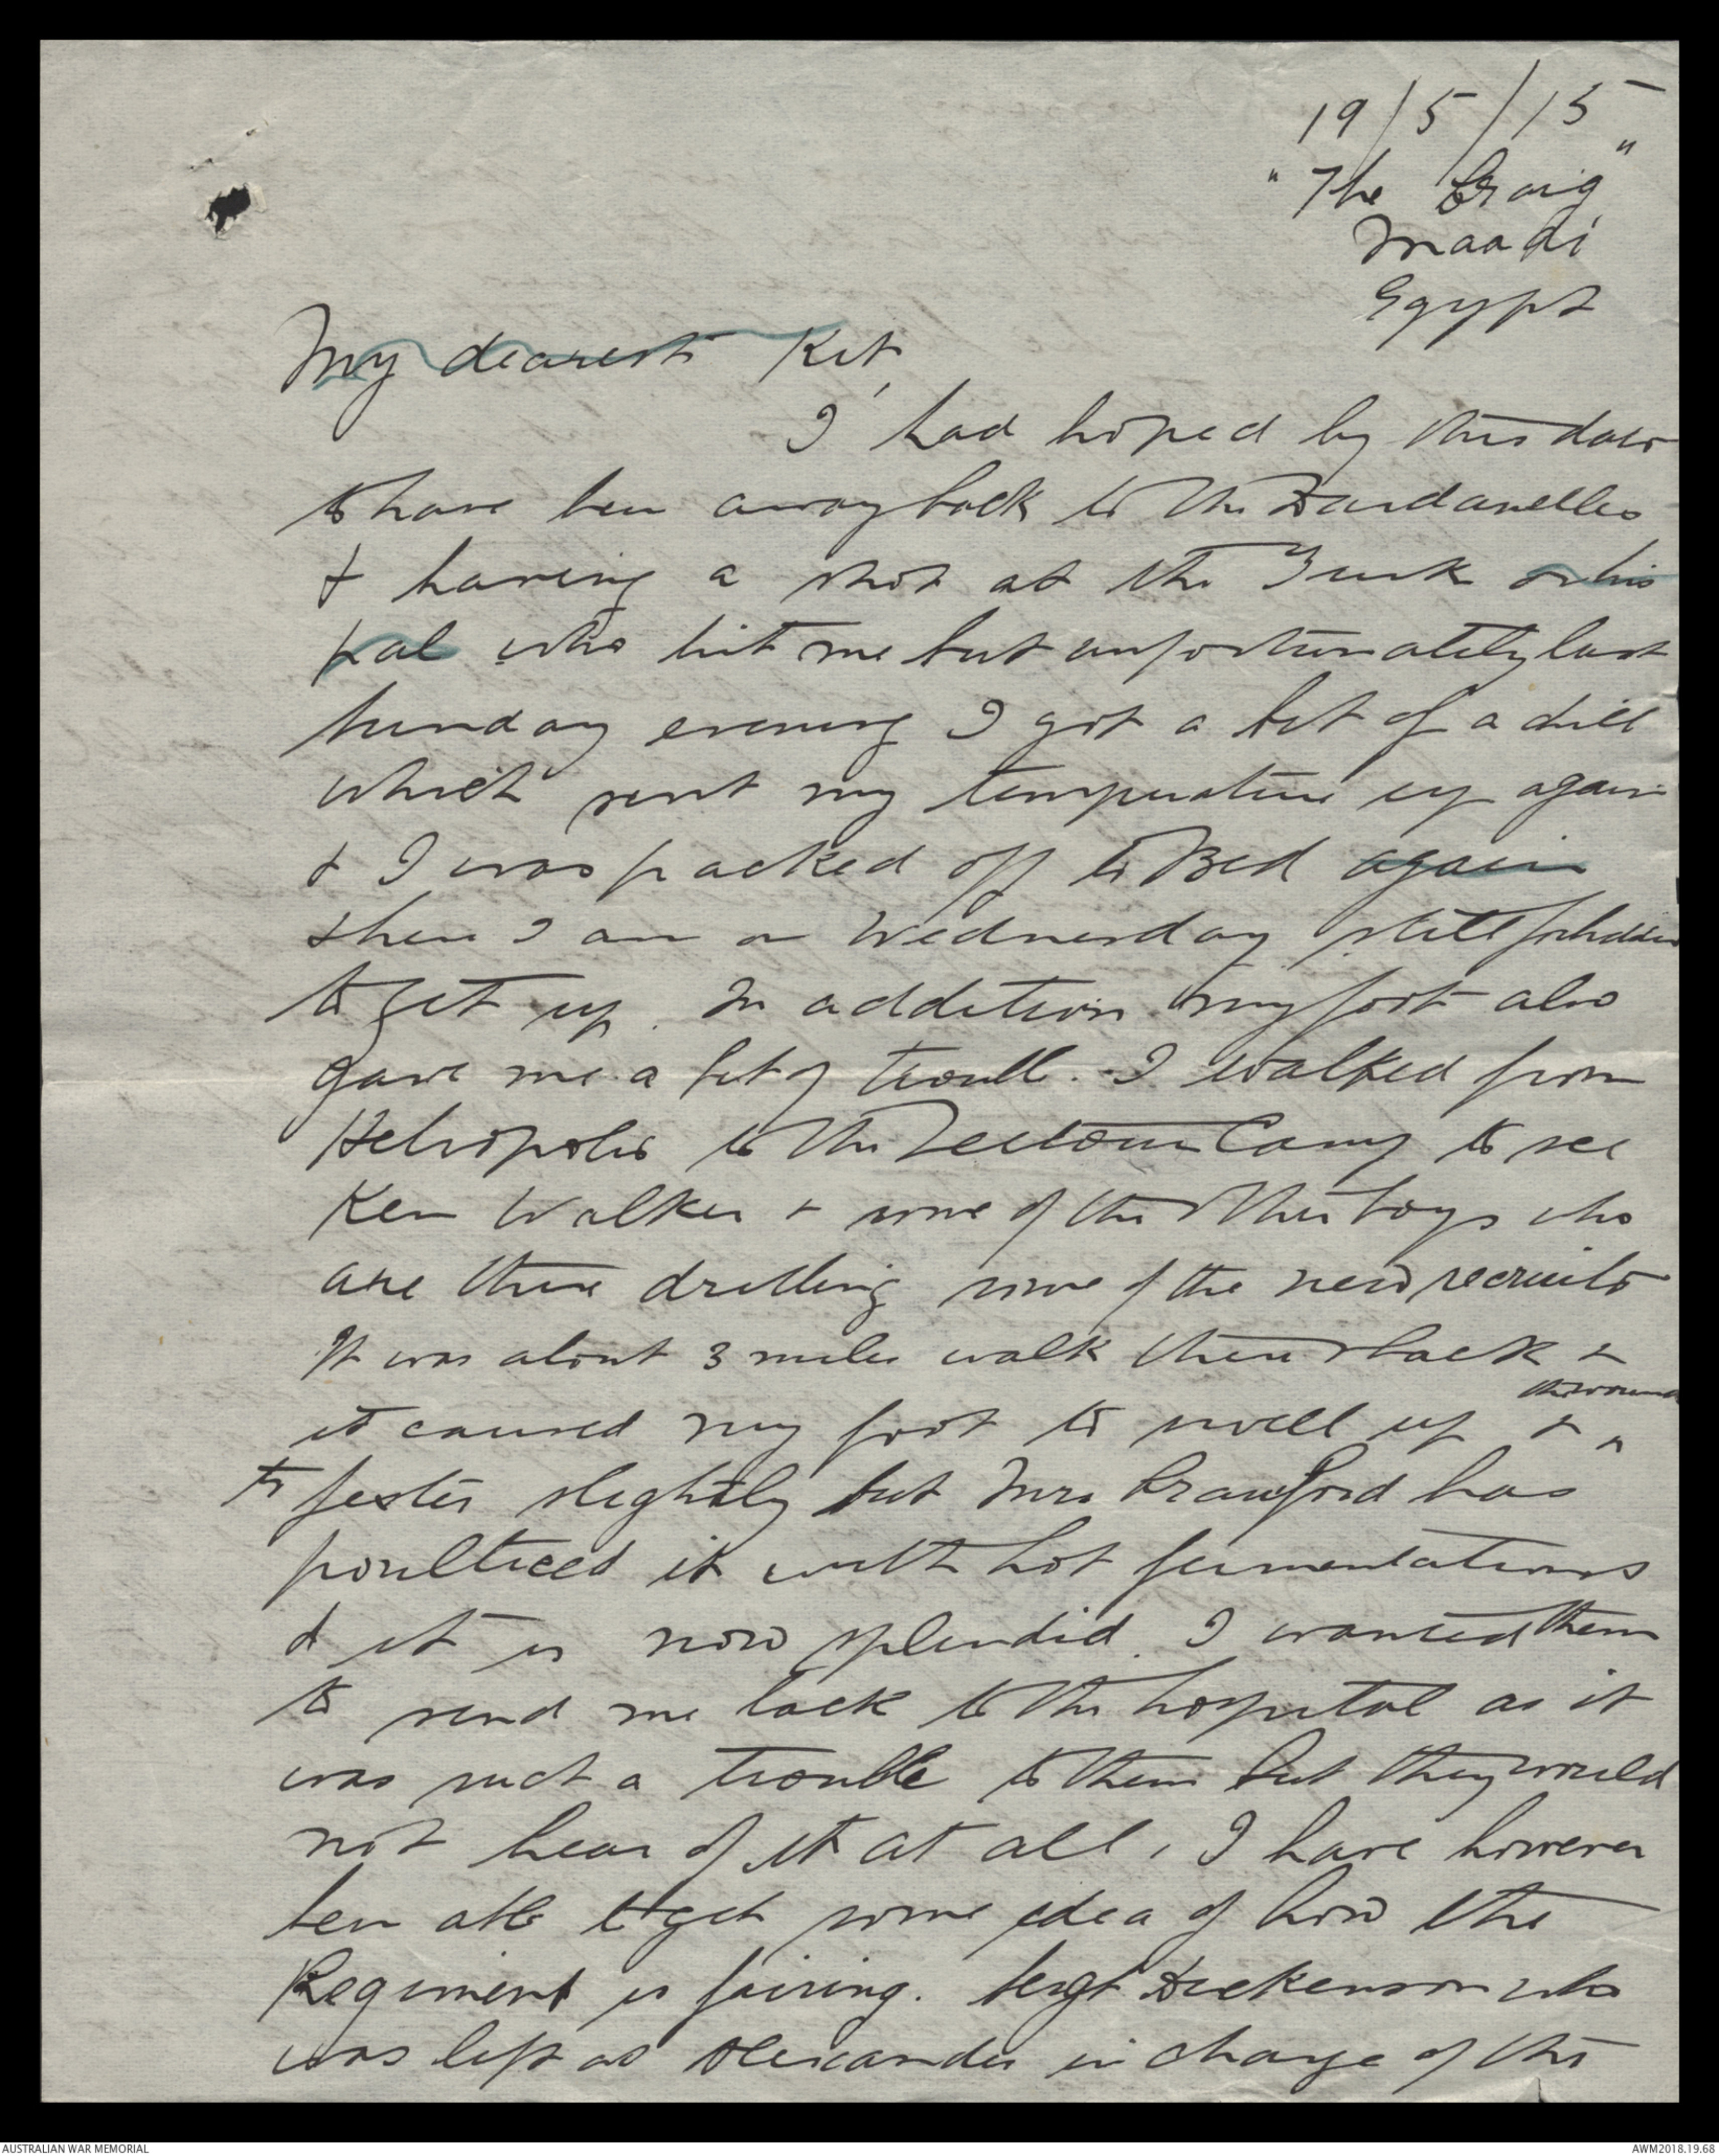 19/5/15
"The Craig"
Maadi
Egypt
My dearest Kit,
I had hoped by this date
to have been away back to the Dardanelles
& having a shot at the Turk or his
pal who hit me but unfortunately last
Sunday evening I got a bit of a chill
which sent my temperature up again
& I was packed off to Bed again
& here I am on Wednesday still forbidden
to get up. In addition my foot also
gave me a bit of trouble. I walked from
Heliopolis to the Zeitoun Camp to see
Ken Walker & some of the other boys who
are there drilling some of the new recruits
It was about 3 miles walk there & back &
it caused my foot to swell up & the wound
to fester slightly but Mrs Crawford has
poulticed it with hot fermentations
& it is now splendid. I wanted them
to send me back to the hospital as it
was such a trouble to them but they would
not hear of it at all, I have however
been able to get some idea of how the
Regiment is fairing. Sergt Dickenson who
was left at Alexander in charge of the
AUSTRALIAN WAR MEMORIAL
AWM2018.19.68